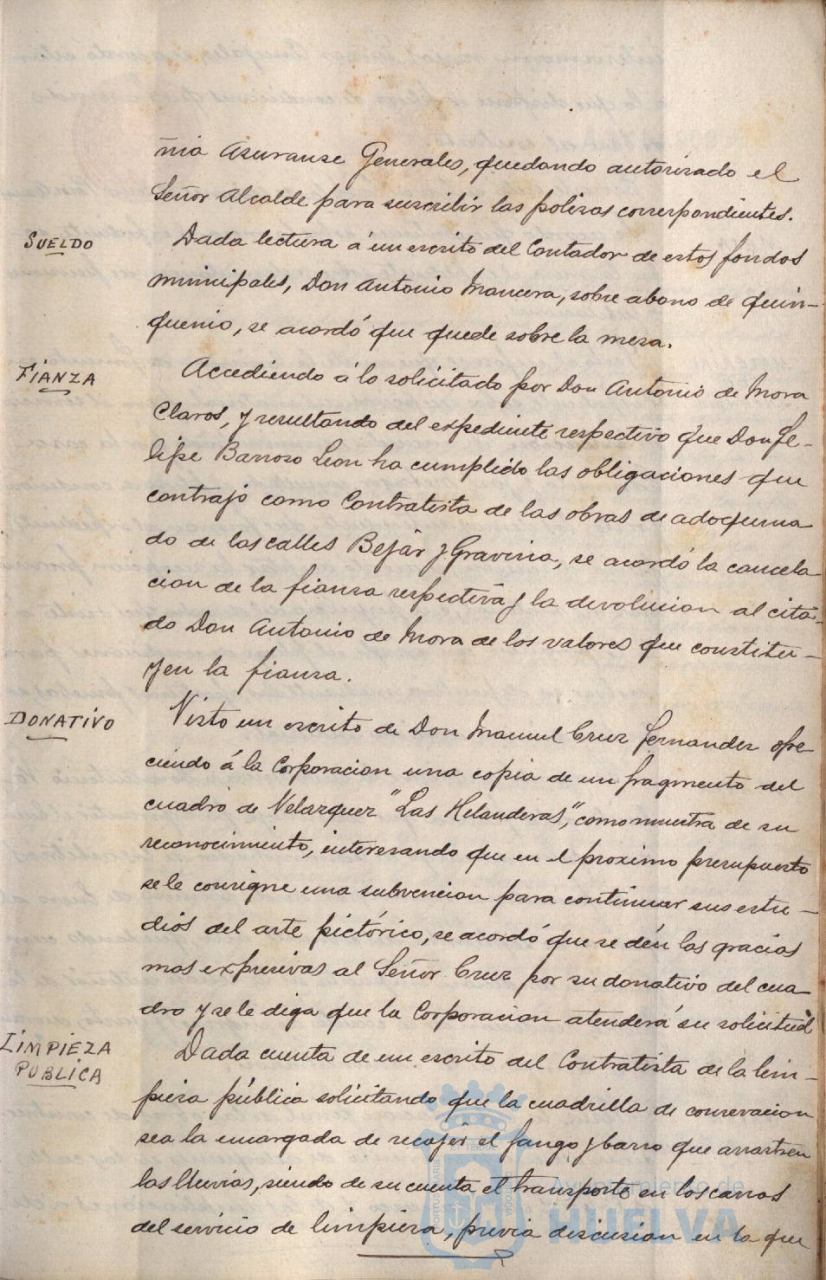 ñia Asuranse Generales, quedando autorizado el
Señor Alcalde para suscribir las polizas correspondientes.
SUELDO
Dada lectura á un escrito del Contador de estos fondos
municipales, Don Antonio Mancera, sobre abono de quin-
quenio, se acordó que quede sobre la mesa.
FIANZA
Accediendo á lo solicitado por Don Antonio de Mora
Claros, y resultando del expediente respectivo que Don Fe-
lipe Barroso Leon ha cumplido las obligaciones que
contrajo como Contratista de las obras de adoquina
do de las calles Bejár y Gravina, se acordó la cancela-
cion de la fianza respectiva y la devolucion al cita-
do Don Antonio de Mora de los valores que constitu-
yen la fianza.
DONATIVO
Visto un escrito de Don Manuel Cruz Fernandez ofre
ciendo á la Corporacion una copia de un fragmento del
cuadro de Velazquez "Las Hilanderas", como muestra de su
reconocimiento, interesando que en el proximo presupuesto
se le consigne una subvencion para continuar sus estu-
dios del arte pictórico, se acordó que se dén las gracias
mas expresivas al Señor Cruz por su donativo del cua-
dro y se le diga que la Corporacion atenderá su solicitud
LIMPIEZA
PUBLICA
Dada cuenta de un escrito del Contratista de la lim-
pieza pública solicitando que la cuadrilla de conservacion
sea la encargada de recojer el fango y barro que arrastren
las lluvias, siendo de su cuenta el transporte en los carros
del servicio de limpieza, previa discusion en la que
Ayuntamiento de
HUELVA